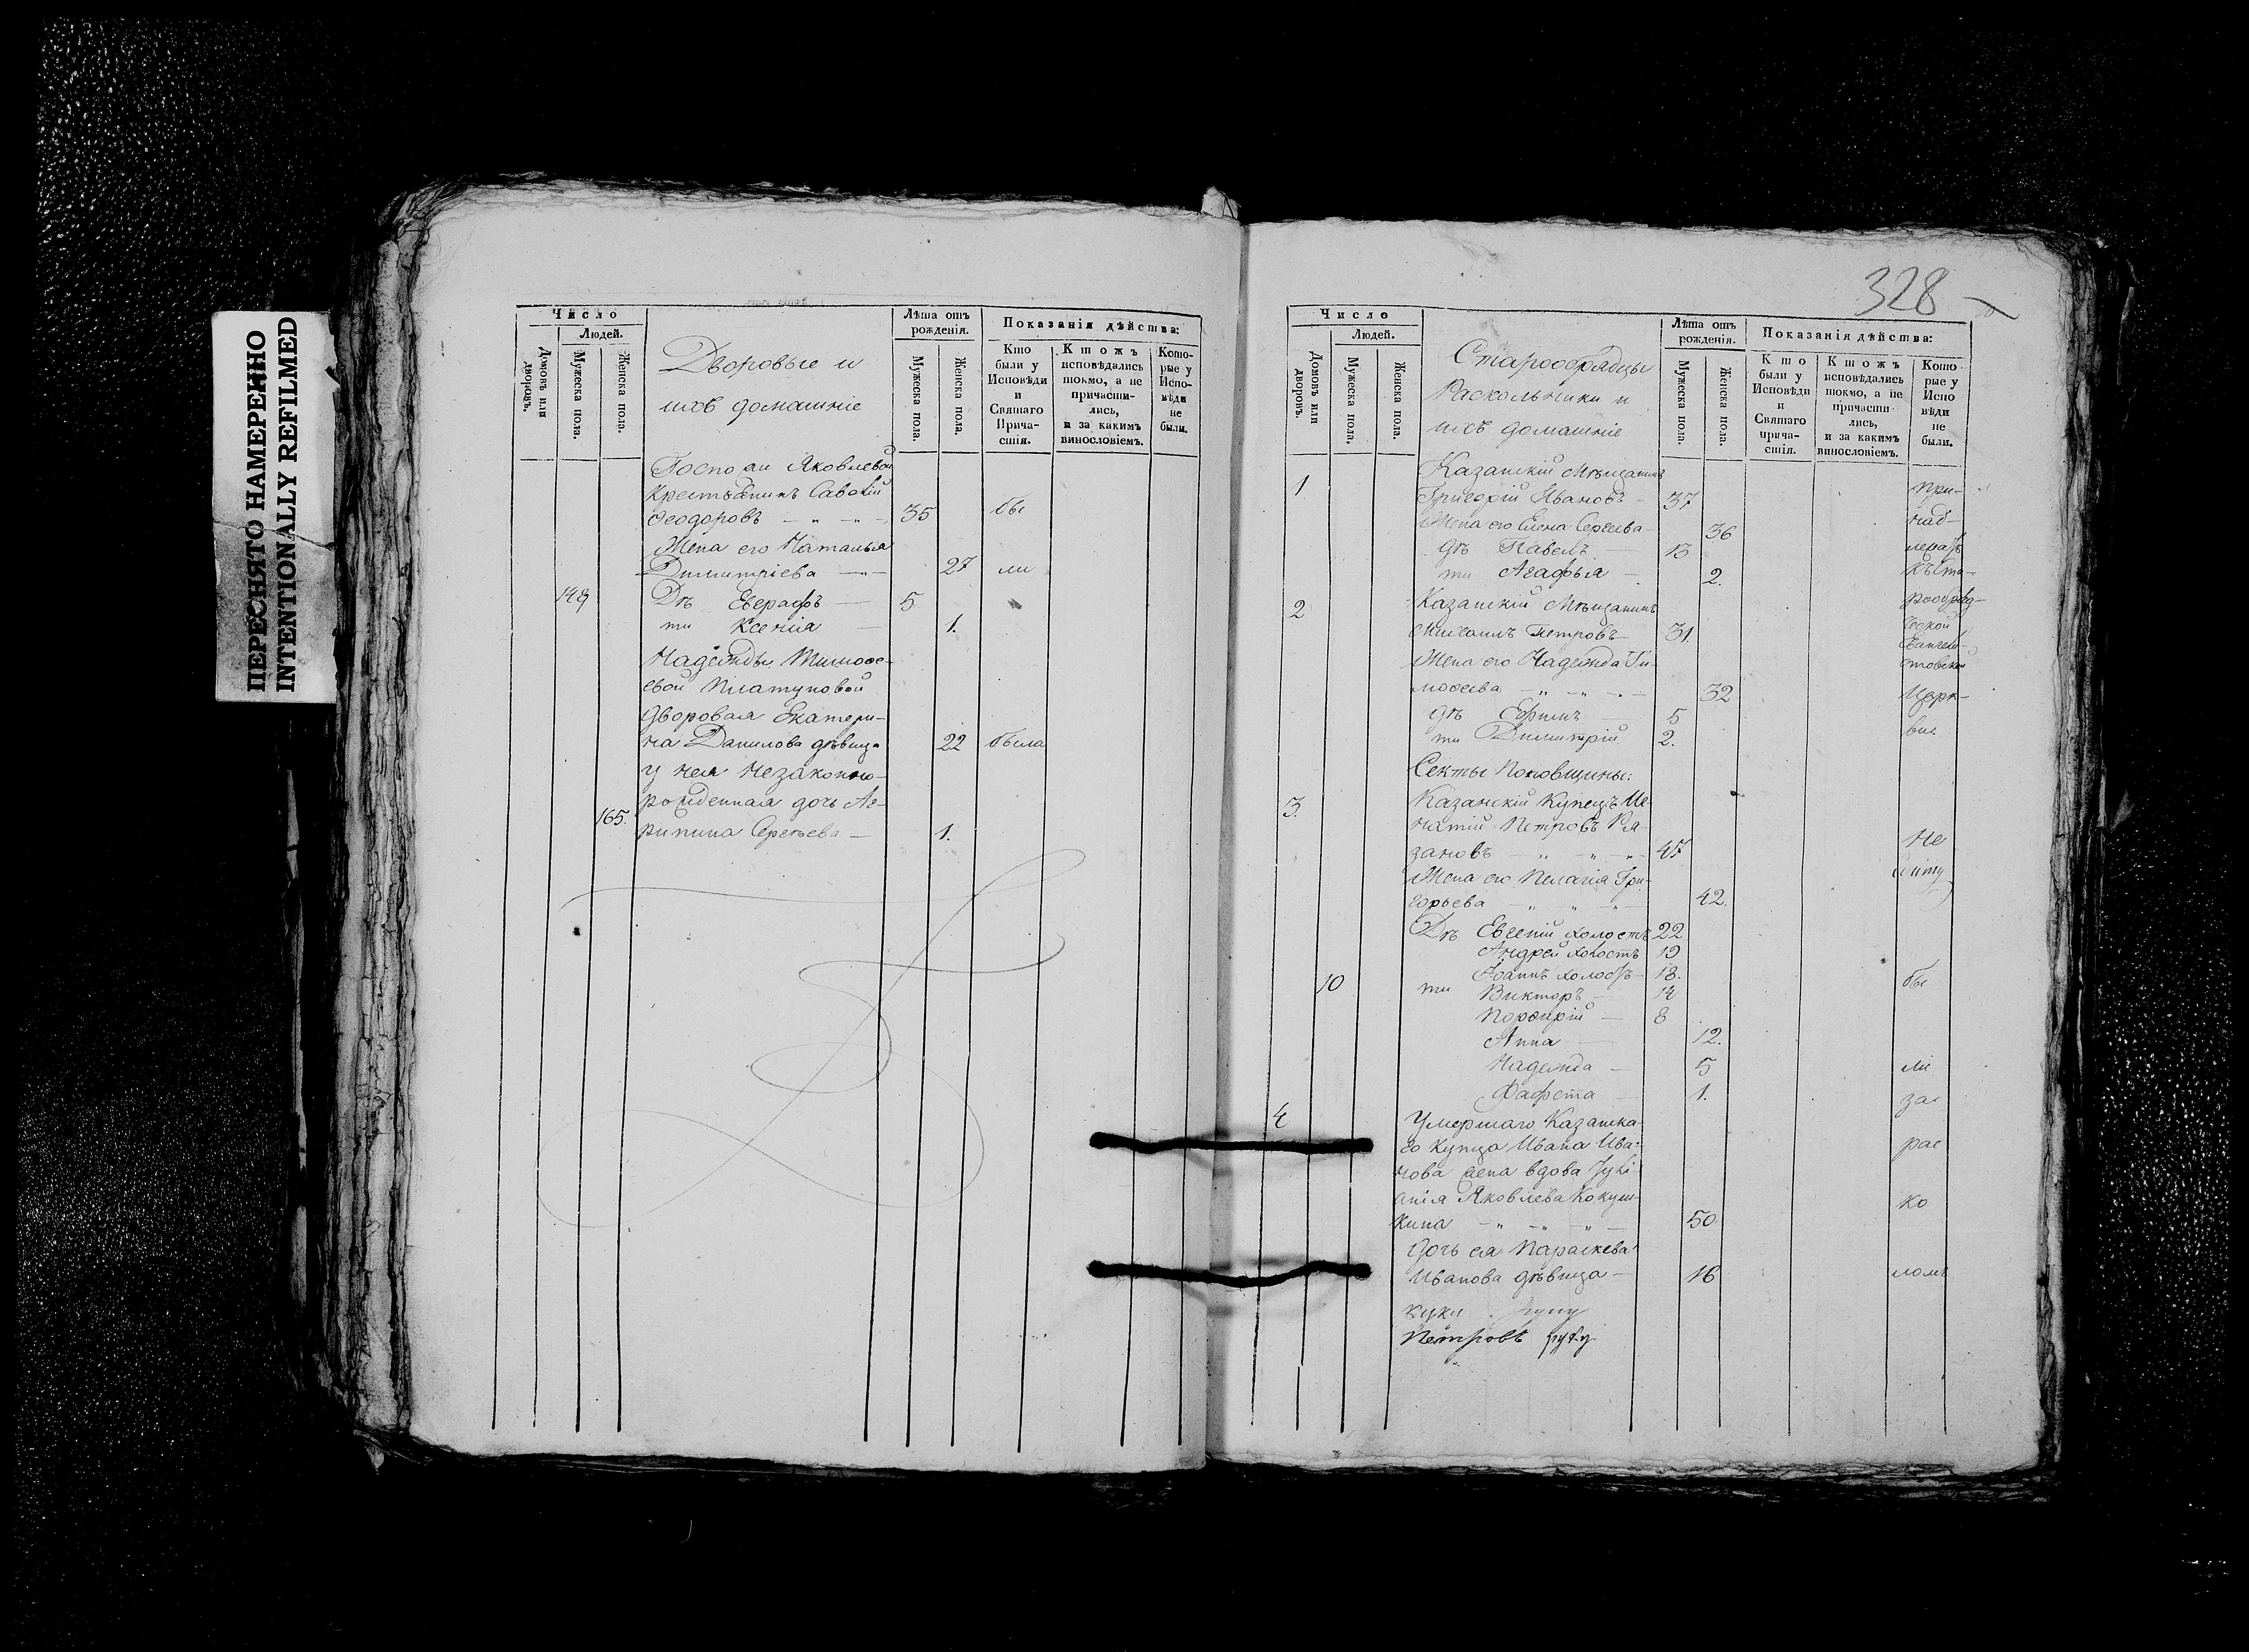 ПЕРЕСНЯТО НАМЕРЕННО
INTENTIONALLY REFILMED
Число
Людей.
Домовъ или дворовъ.
Мужеска пола.
Женска пола.
Дворовые и
ихъ домашніе
Лѣта отъ рожденія.
Мужеска пола.
Женска пола.
Показанія дѣйства:
Кто были у Исповѣди и Святаго Прича-стія.
Ктожъ исповѣдались токмо, а не причасти-лись, и за какимъ винословіемъ.
Кото-рые у Испо-вѣди не были.
Госпожи Яковлевой
крестьянинъ Савватій
Ѳеодоровъ 35 бы
Жена его Наталья
Димитріева 27 ли
149 Дѣ Евграфъ 5
ти Ксенія 1.
Надежды Тимоѳе-
евой Платуновой
дворовая Екатери-
на Данилова дѣвица 22 была
у нея незаконно-
рожденная дочь Аг-
165. рипина Сергѣева 1.
328
Число
Людей.
Домовъ или дворовъ.
Мужеска пола.
Женска пола.
Старообрядцы
Раскольники и
ихъ домашніе
Лѣта отъ рожденія.
Мужеска пола.
Женска пола.
Показанія дѣйства:
Кто были у Исповѣди и Святаго прича-стія.
Ктожъ исповѣдались токмо, а не причасти-лись, и за какимъ винословіемъ.
Кото-рые у Испо-вѣди не были.
1 Казанскій Мѣщанинъ
Григорій Ивановъ 37 при-
Жена его Елена Сергеева 36 над-
дѣ Павелъ 13 лежатъ
ти Агафья 2. къ Ста-
2 Казанскій Мѣщанинъ рообряд-
Михаилъ Петровъ 31. ческой
Жена его Надежда Ти- Евангели-
моѳеева 32 стовской
дѣ Ефимъ 5 Церк-
ти Димитрій 2. ви.
Секты Поповщины:
3. Казанскій Купецъ Иг-
натій Петровъ Ря-
зановъ 47 Не
Жена его Пелагія Гри-
горьева 42.
Дѣ Евгеній холостъ 22
Андрей холостъ 19
Іоаннъ холостъ 18.
10 ти Викторъ 14 бы
Порфирій 8
Анна 12.
Надежда 5 ли
1. за
4 Умершаго Казанска-
го купца Ивана Ива- рас
нова жена вдова Іулі-
анія Яковлева Кокуш- ко
кина 50
Дочь ея Параскева
Иванова дѣвица 16 ломъ
Петровъ руку